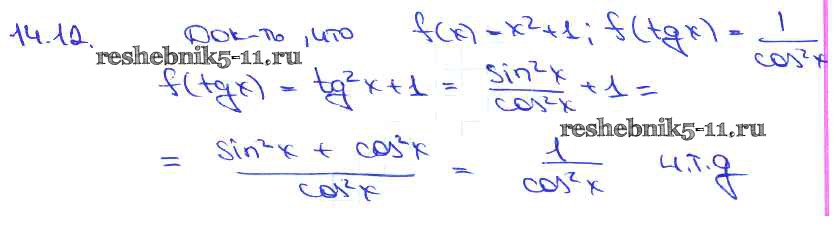 14.12. Док-ть, что f(x) = x²+1; f(tgx) = 1/cos²x
reshebnik5-11.ru
f(tgx) = tg²x+1 = sin²x/cos²x + 1 =
reshebnik5-11.ru
= (sin²x + cos²x)/cos²x = 1/cos²x ч.т.д